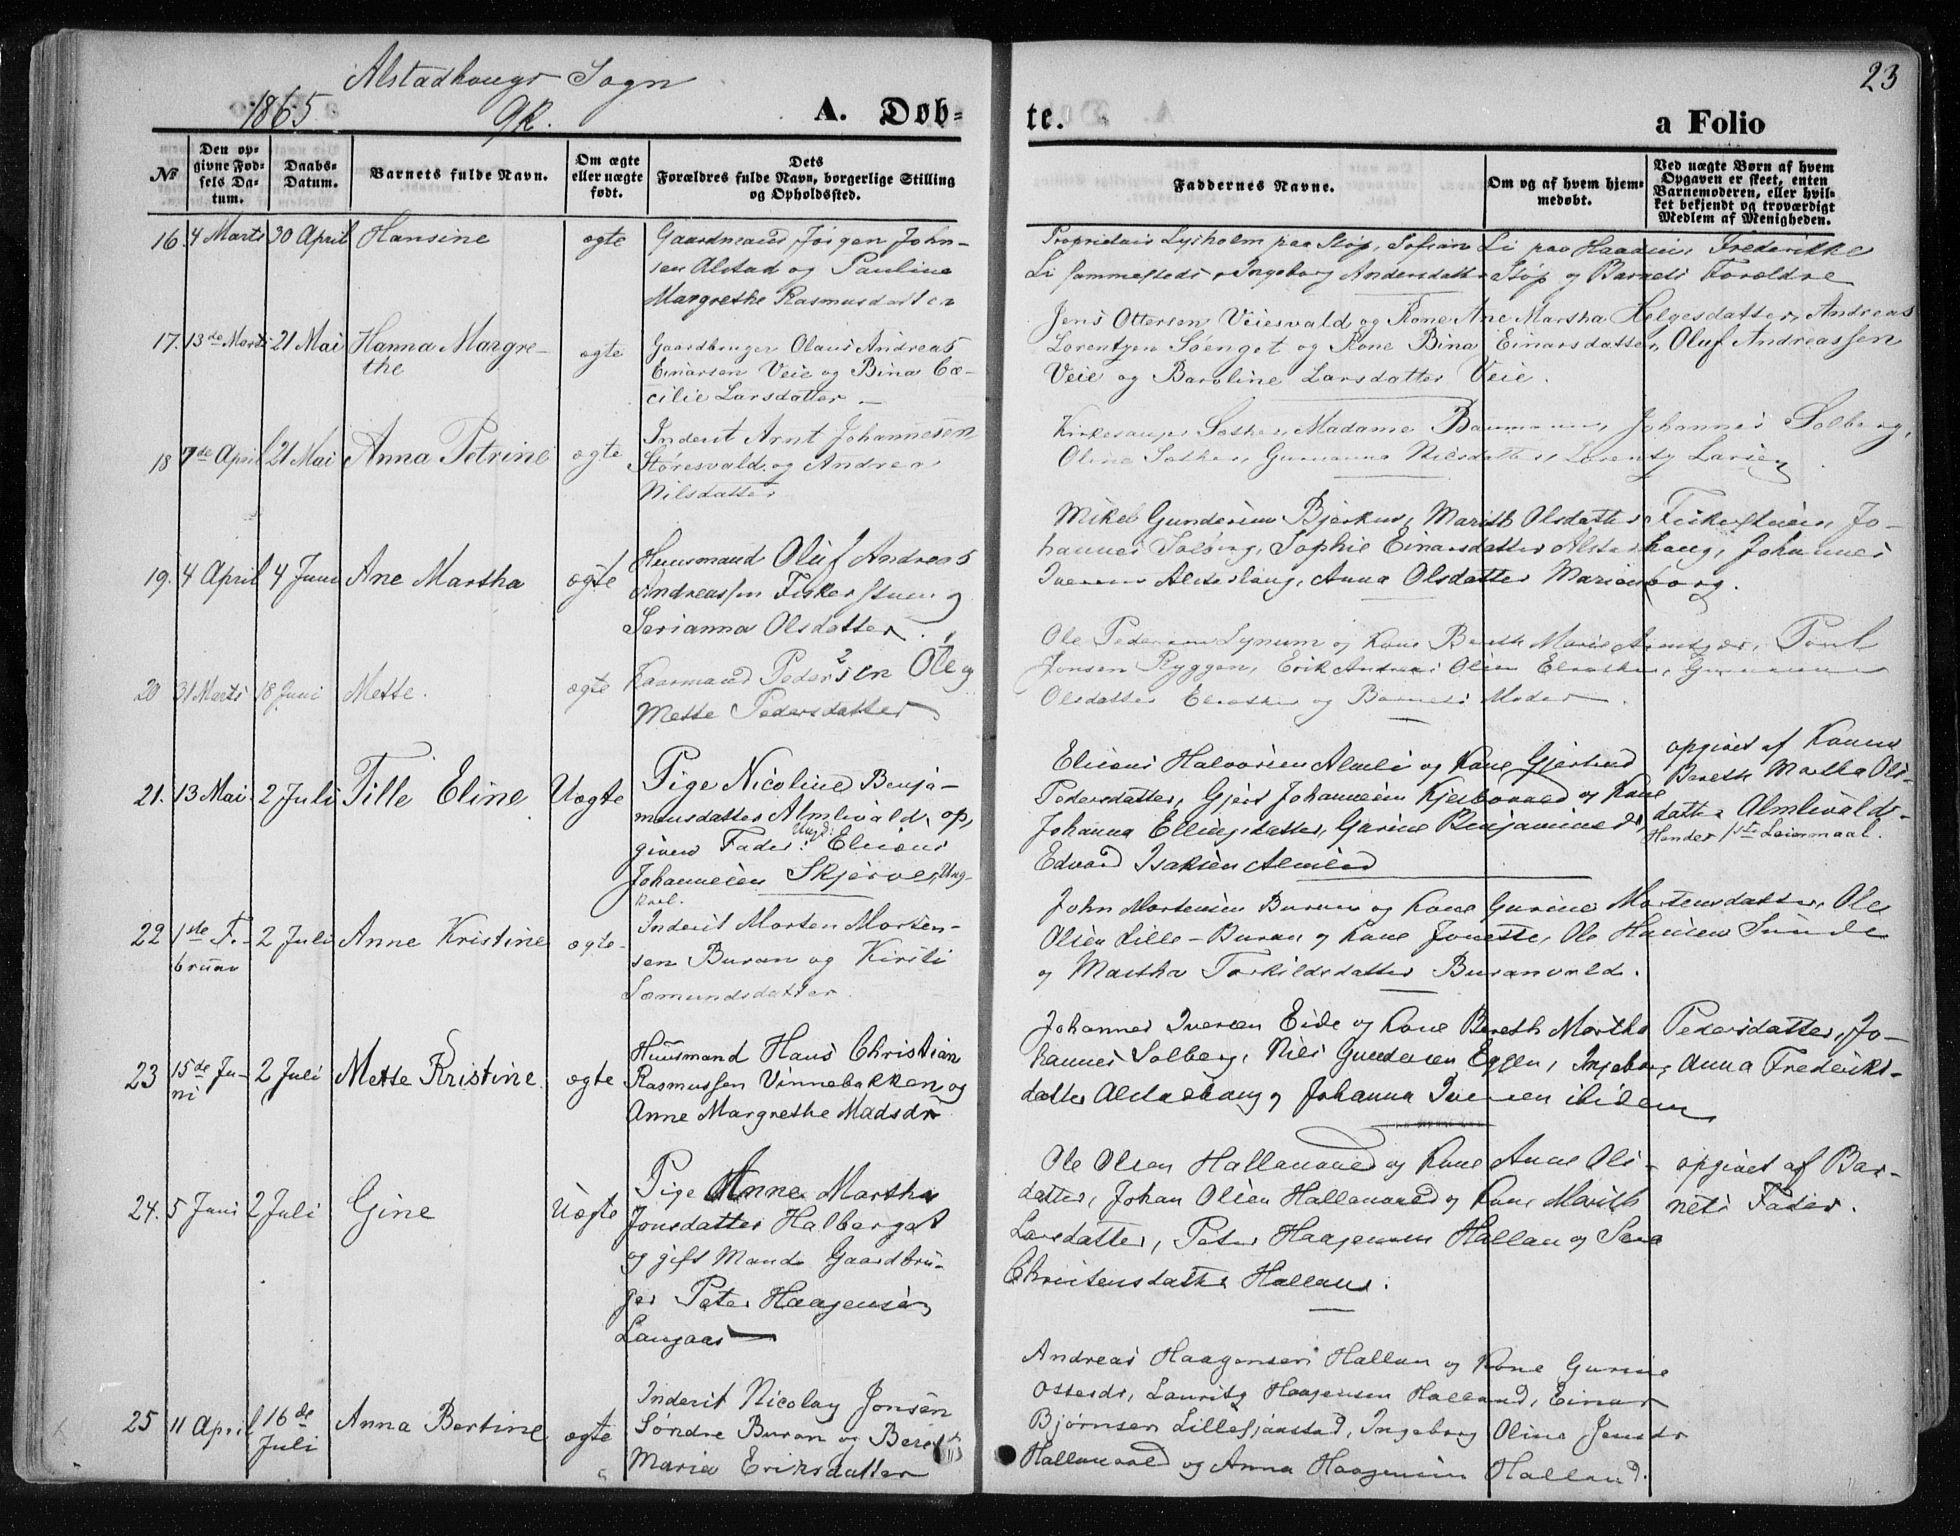 Alstadhougs Sogn
1865 A. Døb-
te. 23
a Folio
№
Den op-
givne Fød-
sels Da-
tum.
Daabs-
Datum.
Barnets fulde Navn.
Om ægte
eller uægte
født.
Dets
Forældres fulde Navn, borgerlige Stilling
og Opholdssted.
Faddernes Navne.
Om og af hvem hjem-
medøbt.
Ved uægte Børn af hvem
Opgaven er skeet, enten
Barnemoderen, eller hvil-
ket bekjendt og troværdigt
Medlem af Menigheden.
16. 4 Marts 30 April Hansine ægte Gaardmand Jørgen John-
sen Alstad og Pauline
Margrethe Rasmusdatter
Proprietair Lysholm paa Støp, Li paa Frederikke
Li sammesteds, Ingeborg Andersdatter Støp og Barnets Forældre
17. 13de Marts 21 Mai Hanna Margre-
the ægte Gaardbruger Olaus Andreas
Einarsen Veie og Bina Cæ-
cilie Larsdatter
Jens Ottersen Veiesvald og Kone Ane Martha Helgesdatter, Andreas
Lorentzen Søenget og Kone Bina Einarsdatter, Oluf Andreassen
Veie og Baroline Larsdatter Veie.
18 7de April 21 Mai Anna Petrine ægte Inderst Arnt Johannesen
Støresvald og Andrea
Nilsdatter
Kirkesanger Madame Johannes Solberg,
Oline Gunanna Nilsdatter, Lorentz Larsen
19. 4 April 4 Juni Ane Martha ægte Huusmand Oluf Andreas
Andreassen Fiskerstuen og
Serianna Olsdatter.
Mikel Gundersen Marith Olsdatter Fiskerstuen, Jo-
hannes Solberg, Sophie Einarsdatter Alstadhaug, Johannes
Iversen Alstadhaug, Anna Olsdatter Marienborg.
20 31 Marts 18 Juni Mette. ægte Pedersen Ole og
Mette Pedersdatter
Ole Pedersen Lynum og Kone Bereth Marie
Jonsen Ryggen, Erik Andreas Olsen
Olsdatter og Barnets Moder
21. 13 Mai 2 Juli Tille Eline Uægte Pige Nicoline Benja-
minsdatter Almlivald, op-
given Fader: Ungd: Elieus
Johannesen Skjerve, Ung-
karl.
Elieus Halvorsen Almli og Kone Gjertrud
Pedersdatter, Gjert Johannesen og Kone
Johanna Ellingsdatter, Gurine Benjaminsd.
Edvard Isaksen Almlid
opgivet af Konen
Bereth Martha Ols-
datter Almlivald
Hendes 1ste Leiermaal.
22 1ste Fe-
bruar 2 Juli Anne Kristine ægte Inderst Morten Morten-
sen Buran og Kirsti
Sæmundsdatter
John Mortensen Buran og Kone Gurine Mortensdatter, Ole
Olsen Lille-Buran og Kone Jonette, Ole Hansen Sunde
og Martha Torkildsdatter Buranvald.
23 15de Ju-
ni 2 Juli Mette Kristine. ægte Huusmand Hans Christian
Rasmussen Vinnebakken og
Anne Margrethe Madsdr
Johannes Iversen Eide og Kone Bereth Martha Pedersdatter, Jo-
hannes Solberg, Nils Gundersen Eggen, Ingeborg Anna Frederiks-
datter Alstadhaug og Johanna Iversen ibidem
24. 5 Juni 2 Juli Gine Uægte Pige Anne Martha
Jonsdatter Halberget
og gift Mand Gaardbru-
ger Peter Haagensen
Langaas
Ole Olsen Hallanvald og Kone Anne Ols-
datter, Johan Olsen Hallanvald og Kone Marith
Larsdatter, Peter Haagensen Hallan og Sara
Christensdatter Halland.
opgivet af Bar-
nets Fader.
25 11 April 16de
Juli Anna Bertine ægte Inderst Nicolay Jonsen
Søndre Buran og Bereth
Maria Eriksdatter
Andreas Haagensen Hallan og Kone Gurine
Ottersdr, Lauritz Haagensen Halland, Einar
Bjørnsen Ingeborg Oline Jensdr
Hallanvald og Anna Haagensen Halland.